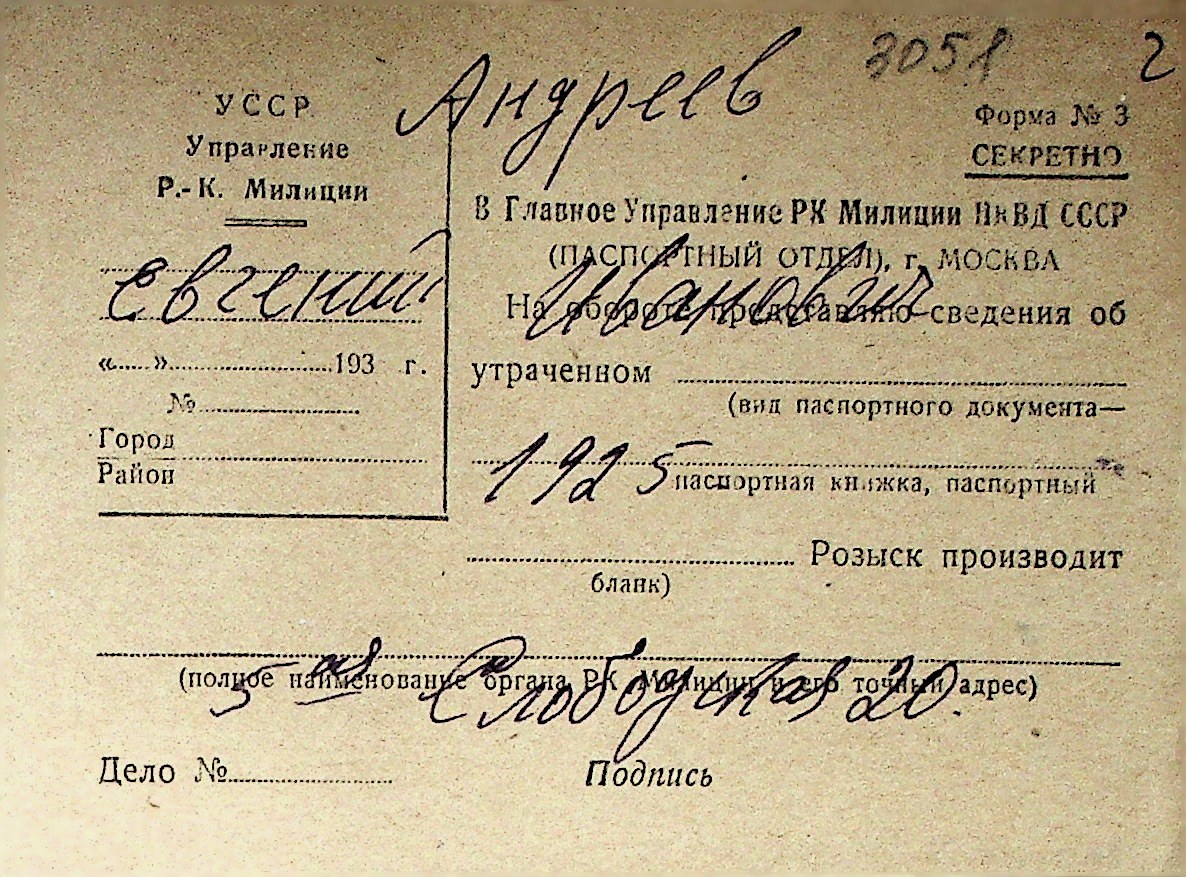 3051 2
Андреев
УССР
Управление
Р.-К. Милиции
Евгений
«.....»..........................193 г.
№.........................
Город
Район
Форма № 3
СЕКРЕТНО
В Главное Управление РК Милиции НКВД СССР
(ПАСПОРТНЫЙ ОТДЕЛ), г. МОСКВА
Иванович
На обороте представляю сведения об
утраченном
(вид паспортного документа—
1925
паспортная книжка, паспортный
Розыск производит
бланк)
(полное наименование органа РК Милиции и его точный адрес)
5 ая Слободская 20.
Дело №........................ Подпись